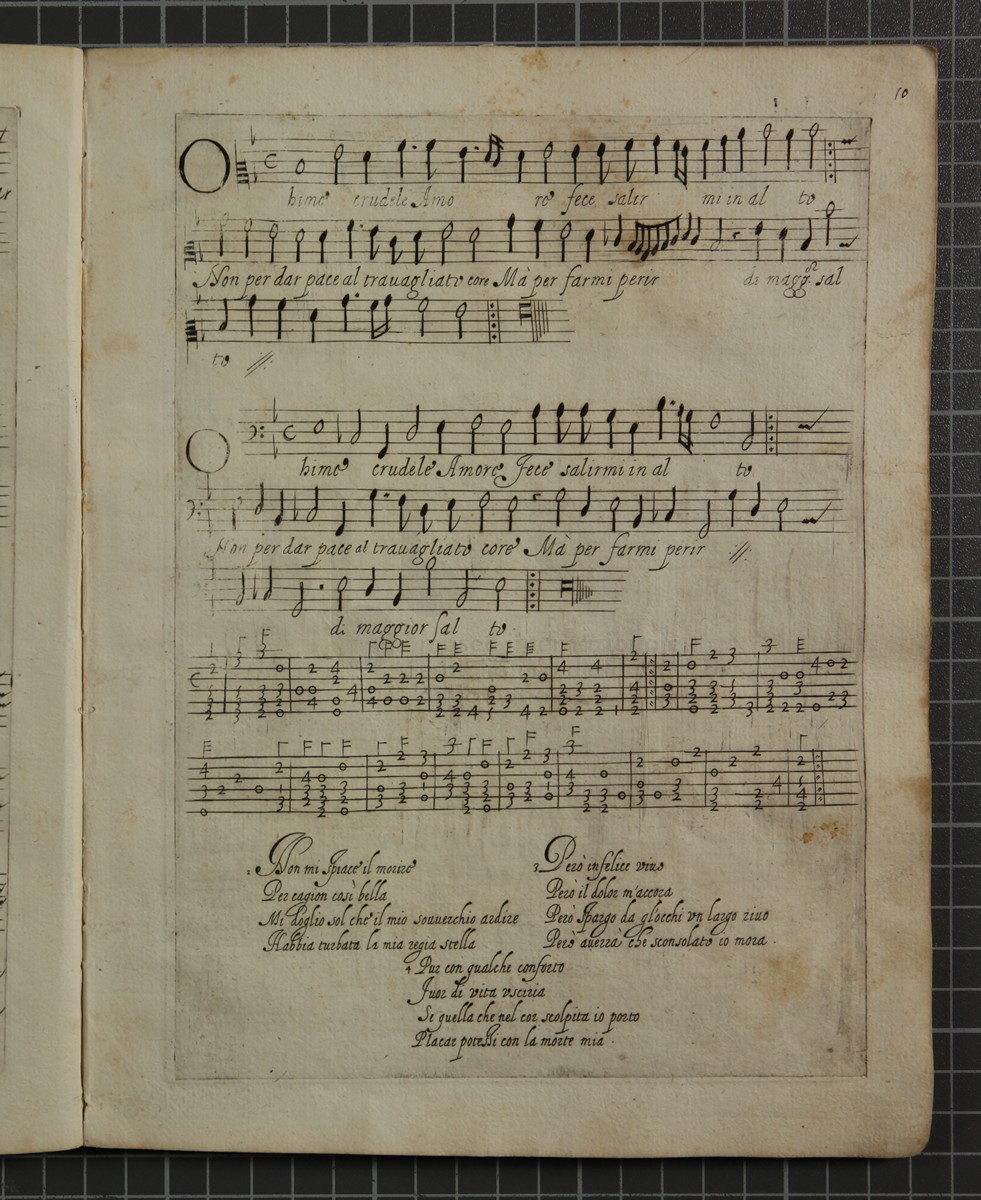 10
O
himè crudele Amo re fece salir mi in al to
Non per dar pace al trauagliato core Mà per farmi perir di maggor sal
to //.
O
himè crudele Amore Fece salirmi in al to
Non per dar pace al trauagliato core Mà per farmi perir //.
di maggior sal to
2 Non mi spiace il morire
Per cagion così bella
Mi doglio sol che il mio souuerchio ardire
Habbia turbata la mia regia stella
3 Però infelice viuo
Però il dolor m'accora
Però spargo da gl'occhi vn largo riuo
Però auerrà che sconsolato io mora
4 Pur con qualche conforto
Fuor di vita vsciria
Se quella che nel cor scolpita io porto
Placar potessi con la morte mia